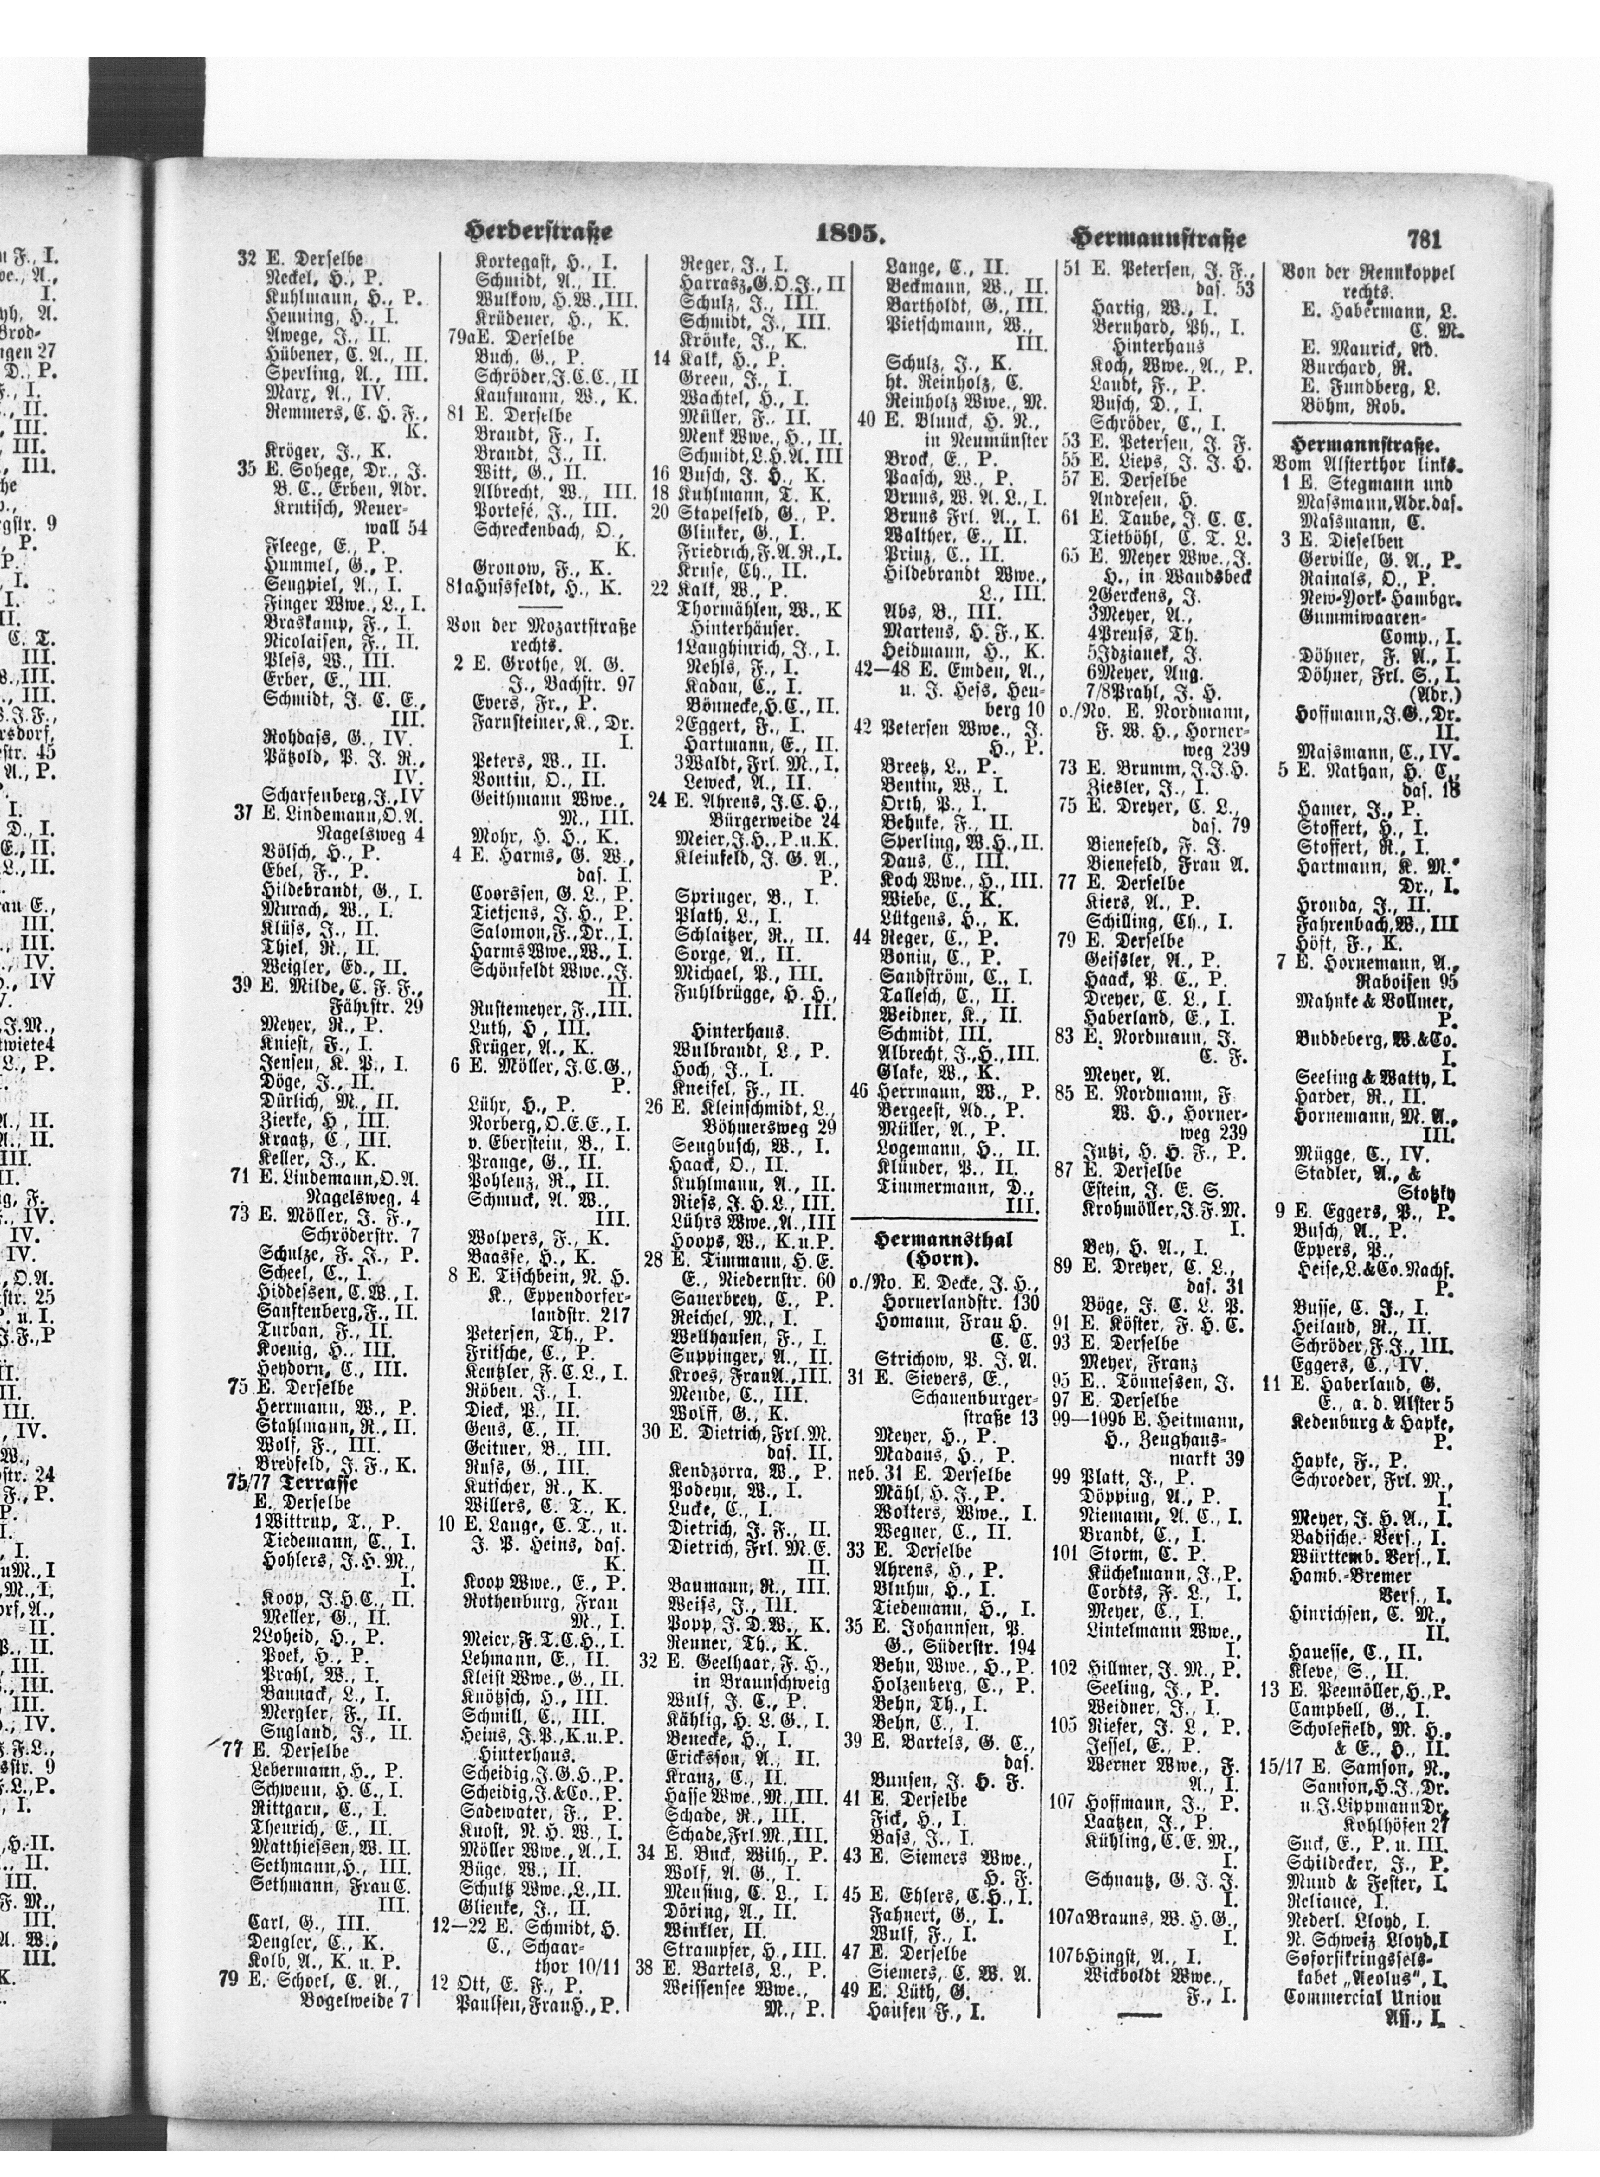 Herderstraße 1895. Hermannstraße 781
32 E. Derselbe
Neckel, H., P.
Kuhlmann, H., P.
Henning, H., I.
Awege, J., II.
Hübener, C. A., II.
Sperling, A., III.
Marx, A., IV.
Remmers, C. H. F.,
K.
Kröger, J., K.
35 E. Sohege, Dr., J.
B. C., Erben, Adr.
Krutisch, Neuer-
wall 54
Fleege, E., P.
Hummel, G., P.
Sengpiel, A., I.
Finger Wwe., L., I.
Braskamp, F., I.
Nicolaisen, F., II.
Pless, W., III.
Erber, E., III.
Schmidt, J. C. E.,
III.
Rohdass, G., IV.
Pätzold, P. J. R.,
IV.
Scharfenberg, J., IV
37 E. Lindemann, O. A.
Nagelsweg 4
Völsch, H., P.
Ebel, F., P.
Hildebrandt, G., I.
Murach, W., I.
Klüss, J., II.
Thiel, R., II.
Weigler, Ed., II.
39 E. Milde, C. F. F.,
Fährstr. 29
Meyer, R., P.
Kniest, F., I.
Jensen, K. P., I.
Döge, J., II.
Dürlich, M., II.
Zierke, H., III.
Kraatz, C., III.
Keller, J., K.
71 E. Lindemann, O. A.
Nagelsweg. 4
73 E. Möller, J. F.,
Schröderstr. 7
Schulze, F. J., P.
Scheel, C., I.
Hiddessen, C. W., I.
Sanftenberg, F., II.
Turban, F., II.
Koenig, H., III.
Heydorn, C., III.
75 E. Derselbe
Herrmann, W., P.
Stahlmann, R., II.
Wolf, F., III.
Bredfeld, J. F., K.
75/77 Terrasse
E. Derselbe
1 Wittrup, T., P.
Tiedemann, C., I.
Hohlers, J. H. M.,
I.
Koop, J. H. C., II.
Meller, G., II.
2 Loheid, H., P.
Poek, H., P.
Prahl, W., I.
Bannack, L., I.
Mergler, F., II.
Sugland, J., II.
77 E. Derselbe
Lebermann, H., P.
Schwenn, H. C., I.
Rittgarn, C., I.
Theurich, E., II.
Matthiessen, W. II.
Sethmann, H., III.
Sethmann, Frau C.
III.
Carl, G., III.
Dengler, C., K.
Kolb, A., K. u. P.
79 E. Schoel, C. A.,
Vogelweide 7
Kortegast, H., I.
Schmidt, A., II.
Wulkow, H. W., III.
Krüdener, H., K.
79a E. Derselbe
Buch, G., P.
Schröder, J. C. C., II
Kaufmann, W., K.
81 E. Derselbe
Brandt, F., I.
Brandt, J., II.
Witt, G., II.
Albrecht, W., III.
Portefé, J., III.
Schreckenbach, O.,
K.
Gronow, F., K.
81a Hussfeldt, H., K.
Von der Mozartstraße
rechts.
2 E. Grothe, A. G.
J., Bachstr. 97
Evers, Fr., P.
Farnsteiner, K., Dr.
I.
Peters, W., II.
Vontin, O., II.
Geithmann Wwe.,
M., III.
Mohr, H. H., K.
4 E. Harms, G. W.,
das. I.
Coorssen, G. L., P.
Tietjens, J. H., P.
Salomon, F., Dr., I.
Harms Wwe., W., I.
Schönfeldt Wwe., J.
II.
Rustemeyer, F., III.
Luth, H., III.
Krüger, A., K.
6 E. Möller, J. C. G.,
P.
Lühr, H., P.
Norberg, O. E. E., I.
v. Eberstein, B., I.
Prange, G., II.
Pohlenz, R., II.
Schmuck, A. W.,
III.
Wolpers, F., K.
Baasse, H., K.
8 E. Tischbein, N. H.
K., Eppendorfer-
landstr. 217
Petersen, Th., P.
Fritsche, C., P.
Kentzler, F. C. L., I.
Röben, J., I.
Dieck, P., II.
Gens, C., II.
Geitner, B., III.
Nuss, G., III.
Kutscher, R., K.
Willers, C. T., K.
10 E. Lange, C. T., u.
J. P. Heins, das.
K.
Koop Wwe., E., P.
Rothenburg, Frau
M., I.
Meier, F. T. C. H., I.
Lehmann, E., II.
Kleist Wwe., G., II.
Knötzsch, H., III.
Schmill, C., III.
Heins, J. P., K. u. P.
Hinterhaus.
Scheidig, J. G. H., P.
Scheidig, J. & Co., P.
Sadewater, F., P.
Knost, N. H. W., I.
Möller Wwe., A., I.
Büge, W., II.
Schultz Wwe., L., II.
Glienke, J., II.
12—22 E. Schmidt, H.
C., Schaar-
thor 10/11
12 Ott, E. F., P.
Paulsen, Frau H., P.
Reger, J., I.
Harrasz, G. O. J., II
Schulz, J., III.
Schmidt, J., III.
Krönke, J., K.
14 Kalk, H., P.
Green, J., I.
Wachtel, H., I.
Müller, F., II.
Menk Wwe., H., II.
Schmidt, L. H. A. III
16 Busch, J. H., K.
18 Kuhlmann, T. K.
20 Stapelfeld, G., P.
Glinker, G., I.
Friedrich, F. A. R., I.
Kruse, Ch., II.
22 Kalk, W., P.
Thormählen, W., K
Hinterhäuser.
1 Laughinrich, J., I.
Nehls, F., I.
Kadau, C., I.
Bönnecke, H. C., II.
2 Eggert, F., I.
Hartmann, E., II.
3 Waldt, Frl. M., I.
Leweck, A., II.
24 E. Ahrens, J. C. H.,
Bürgerweide 24
Meier, J. H., P. u. K.
Kleinfeld, J. G. A.,
P.
Springer, B., I.
Plath, L., I.
Schlaitzer, R., II.
Sorge, A., II.
Michael, P., III.
Fuhlbrügge, H. H.,
III.
Hinterhaus.
Wulbrandt, L., P.
Hoch, J., I.
Kneisel, F., II.
26 E. Kleinschmidt, L.,
Böhmersweg 29
Sengbusch, W., I.
Haack, O., II.
Kuhlmann, A., II.
Riess, J. H. L., III.
Lührs Wwe., A., III
Hoops, W., K. u. P.
28 E. Timmann, H. E.
E., Niedernstr. 60
Sauerbrey, C., P.
Reichel, M., I.
Wellhausen, F., I.
Suppinger, A., II.
Kroes, Frau A., III.
Mende, C., III.
Wolff, G., K.
30 E. Dietrich, Frl. M.
das. II.
Kendzorra, W., P.
Podeyn, W., I.
Lucke, C., I.
Dietrich, J. F., II.
Dietrich, Frl. M. E.
II.
Baumann, R., III.
Weiss, J., III.
Popp, J. D. W., K.
Renner, Th., K.
32 E. Geelhaar, F. H.,
in Braunschweig
Wulf, J. C., P.
Kählig, H. L. G., I.
Benecke, H., I.
Ericksson, A., II.
Kranz, C., II.
Hasse Wwe., M., III.
Schade, R., III.
Schade, Frl. M., III.
34 E. Buck, Wilh., P.
Wolf, A. G., I.
Mensing, C. L., I.
Döring, A., II.
Winkler, II.
Strampfer, H., III.
38 E. Bartels, L., P.
Weissensee Wwe.,
M., P.
Lange, C., II.
Beckmann, W., II.
Bartholdt, G., III.
Pietschmann, W.,
III.
Schulz, J., K.
ht. Reinholz, C.
Reinholz Wwe., M.
40 E. Blunck, H. N.,
in Neumünster
Brock, E., P.
Paasch, W., P.
Bruns, W. A. L., I.
Bruns Frl. A., I.
Walther, E., II.
Prinz, C., II.
Hildebrandt Wwe.,
L., III.
Abs, B., III.
Martens, H. F., K.
Heidmann, H., K.
42—48 E. Emden, A.,
u. J. Hess, Heu-
berg 10
42 Petersen Wwe., J.
H., P.
Breetz, L., P.
Bentin, W., I.
Orth, P., I.
Behnke, F., II.
Sperling, W. H., II.
Daus, C., III.
Koch Wwe., H., III.
Wiebe, C., K.
Lütgens, H., K.
44 Reger, C., P.
Bonin, C., P.
Sandström, C., I.
Tallesch, C., II.
Weidner, K., II.
Schmidt, III.
Albrecht, J., H., III.
Glake, W., K.
46 Herrmann, W., P.
Bergeest, Ad., P.
Müller, A., P.
Logemann, H., II.
Klünder, P., II.
Timmermann, D.,
III.
Hermannsthal
(Horn).
o./No. E. Decke, J. H.,
Hornerlandstr. 130
Homann, Frau H.
C. C.
Strichow, P. J. A.
31 E. Sievers, E.,
Schauenburger-
straße 13
Meyer, H., P.
Madaus, H., P.
neb. 31 E. Derselbe
Mähl, H. J., P.
Wolters, Wwe., I.
Wegner, C., II.
33 E. Derselbe
Ahrens, H., P.
Bluhm, H., I.
Tiedemann, H., I.
35 E. Johannsen, P.
G., Süderstr. 194
Behn, Wwe., H., P.
Holzenberg, C., P.
Behn, Th., I.
Behn, C., I.
39 E. Bartels, G. C.,
das.
Bunsen, J. H. F.
41 E. Derselbe
Fick, H., I.
Bass, J., I.
43 E. Siemers Wwe.,
H. F.
45 E. Ehlers, C. H., I.
Fahnert, G., I.
Wulf, F., I.
47 E. Derselbe
Siemers, C. W. A.
49 E. Lüth, G.
Hausen F., I.
51 E. Petersen, J. F.,
das. 53
Hartig, W., I.
Bernhard, Ph., I.
Hinterhaus
Koch, Wwe., A., P.
Laudt, F., P.
Busch, D., I.
Schröder, C., I.
53 E. Petersen, J. F.
55 E. Lieps, J. J. H.
57 E. Derselbe
Andresen, H.
61 E. Taube, J. C. C.
Tietböhl, C. T. L.
65 E. Meyer Wwe., J.
H., in Wandsbeck
2 Gerckens, J.
3 Meyer, A.,
4 Preuss, Th.
5 Idzianek, J.
6 Meyer, Aug.
7/8 Prahl, J. H.
o./No. E. Nordmann,
F. W. H., Horner-
weg 239
73 E. Brumm, J. J. H.
Ziesler, J., I.
75 E. Dreyer, C. L.,
das. 79
Bienefeld, F. J.
Bienefeld, Frau A.
77 E. Derselbe
Kiers, A., P.
Schilling, Ch., I.
79 E. Derselbe
Geissler, A., P.
Haack, P. C., P.
Dreyer, C. L., I.
Haberland, E., I.
83 E. Nordmann, J.
C. F.
Meyer, A.
85 E. Nordmann, F.
W. H., Horner-
weg 239
Jutzi, H. H. F., P.
87 E. Derselbe
Estein, J. E. S.
Krohmöller, J. F. M.
I.
Bey, H. A., I.
89 E. Dreyer, C. L.,
das. 31
Böge, J. C. L. P.
91 E. Köster, F. H. C.
93 E. Derselbe
Meyer, Franz
95 E. Tönnessen, J.
97 E. Derselbe
99—109b E. Heitmann,
H., Zeughaus-
markt 39
99 Platt, J., P.
Döpping, A., P.
Niemann, A. C., I.
Brandt, C., I.
101 Storm, C. P.
Küchelmann, J., P.
Cordts, F. L., I.
Meyer, C., I.
Lintelmann Wwe.,
I.
102 Hillmer, J. M., P.
Seeling, J., P.
Weidner, J., I.
105 Riefer, J. L., P.
Jessel, E., P.
Werner Wwe., F.
A., I.
107 Hoffmann, J., P.
Laatzen, J., P.
Kühling, C. E. M.,
I.
Schnautz, G. J. J.
I.
107a Brauns, W. H. G.,
I.
107b Hingst, A., I.
Wickboldt Wwe.,
F., I.
Von der Rennkoppel
rechts.
E. Habermann, L.
C. M.
E. Maurick, Ad.
Burchard, R.
E. Fundberg, L.
Böhm, Rob.
Hermannstraße.
Vom Alsterthor links.
1 E. Stegmann und
Massmann, Adr. das.
Massmann, C.
3 E. Dieselben
Gerville, G. A., P.
Rainals, O., P.
New-York-Hambgr.
Gummiwaaren-
Comp., I.
Döhner, F. A., I.
Döhner, Frl. S., I.
(Adr.)
Hoffmann, J. G., Dr.
II.
Massmann, C., IV.
5 E. Nathan, H. C.,
das. 18
Hamer, J., P.
Stoffert, H., I.
Stoffert, R., I.
Hartmann, K. M.
Dr., I.
Hronda, J., II.
Fahrenbach, W., III
Höst, F., K.
7 E. Hornemann, A.,
Raboisen 95
Mahnke & Vollmer,
P.
Buddeberg, W. & Co.
I.
Seeling & Watty, I.
Harder, R., II.
Hornemann, M. A.,
III.
Mügge, C., IV.
Stadler, A., &
Stotzky
9 E. Eggers, P., P.
Busch, A., P.
Eppers, P.,
Heise, L. & Co. Nachf.
P.
Busse, C. J., I.
Heiland, R., II.
Schröder, F. J., III.
Eggers, C., IV.
11 E. Haberland, G.
E., a. d. Alster 5
Kedenburg & Hapke,
P.
Hapke, F., P.
Schroeder, Frl. M.,
I.
Meyer, J. H. A., I.
Badische Vers., I.
Württemb. Vers., I.
Hamb.-Bremer
Vers., I.
Hinrichsen, C. M.,
II.
Hauesse, C., II.
Kleve, S., II.
13 E. Peemöller, H., P.
Campbell, G., I.
Scholefield, M. H.,
& E., H., II.
15/17 E. Samson, N.,
Samson, H. J., Dr.
u. J. Lippmann Dr.
Kohlhöfen 27
Suck, E., P. u. III.
Schildecker, J., P.
Mund & Fester, I.
Reliance, I.
Nederl. Lloyd, I.
N. Schweiz Lloyd, I
Soforsikringssels-
kabet „Aeolus", I.
Commercial Union
Ass., I.